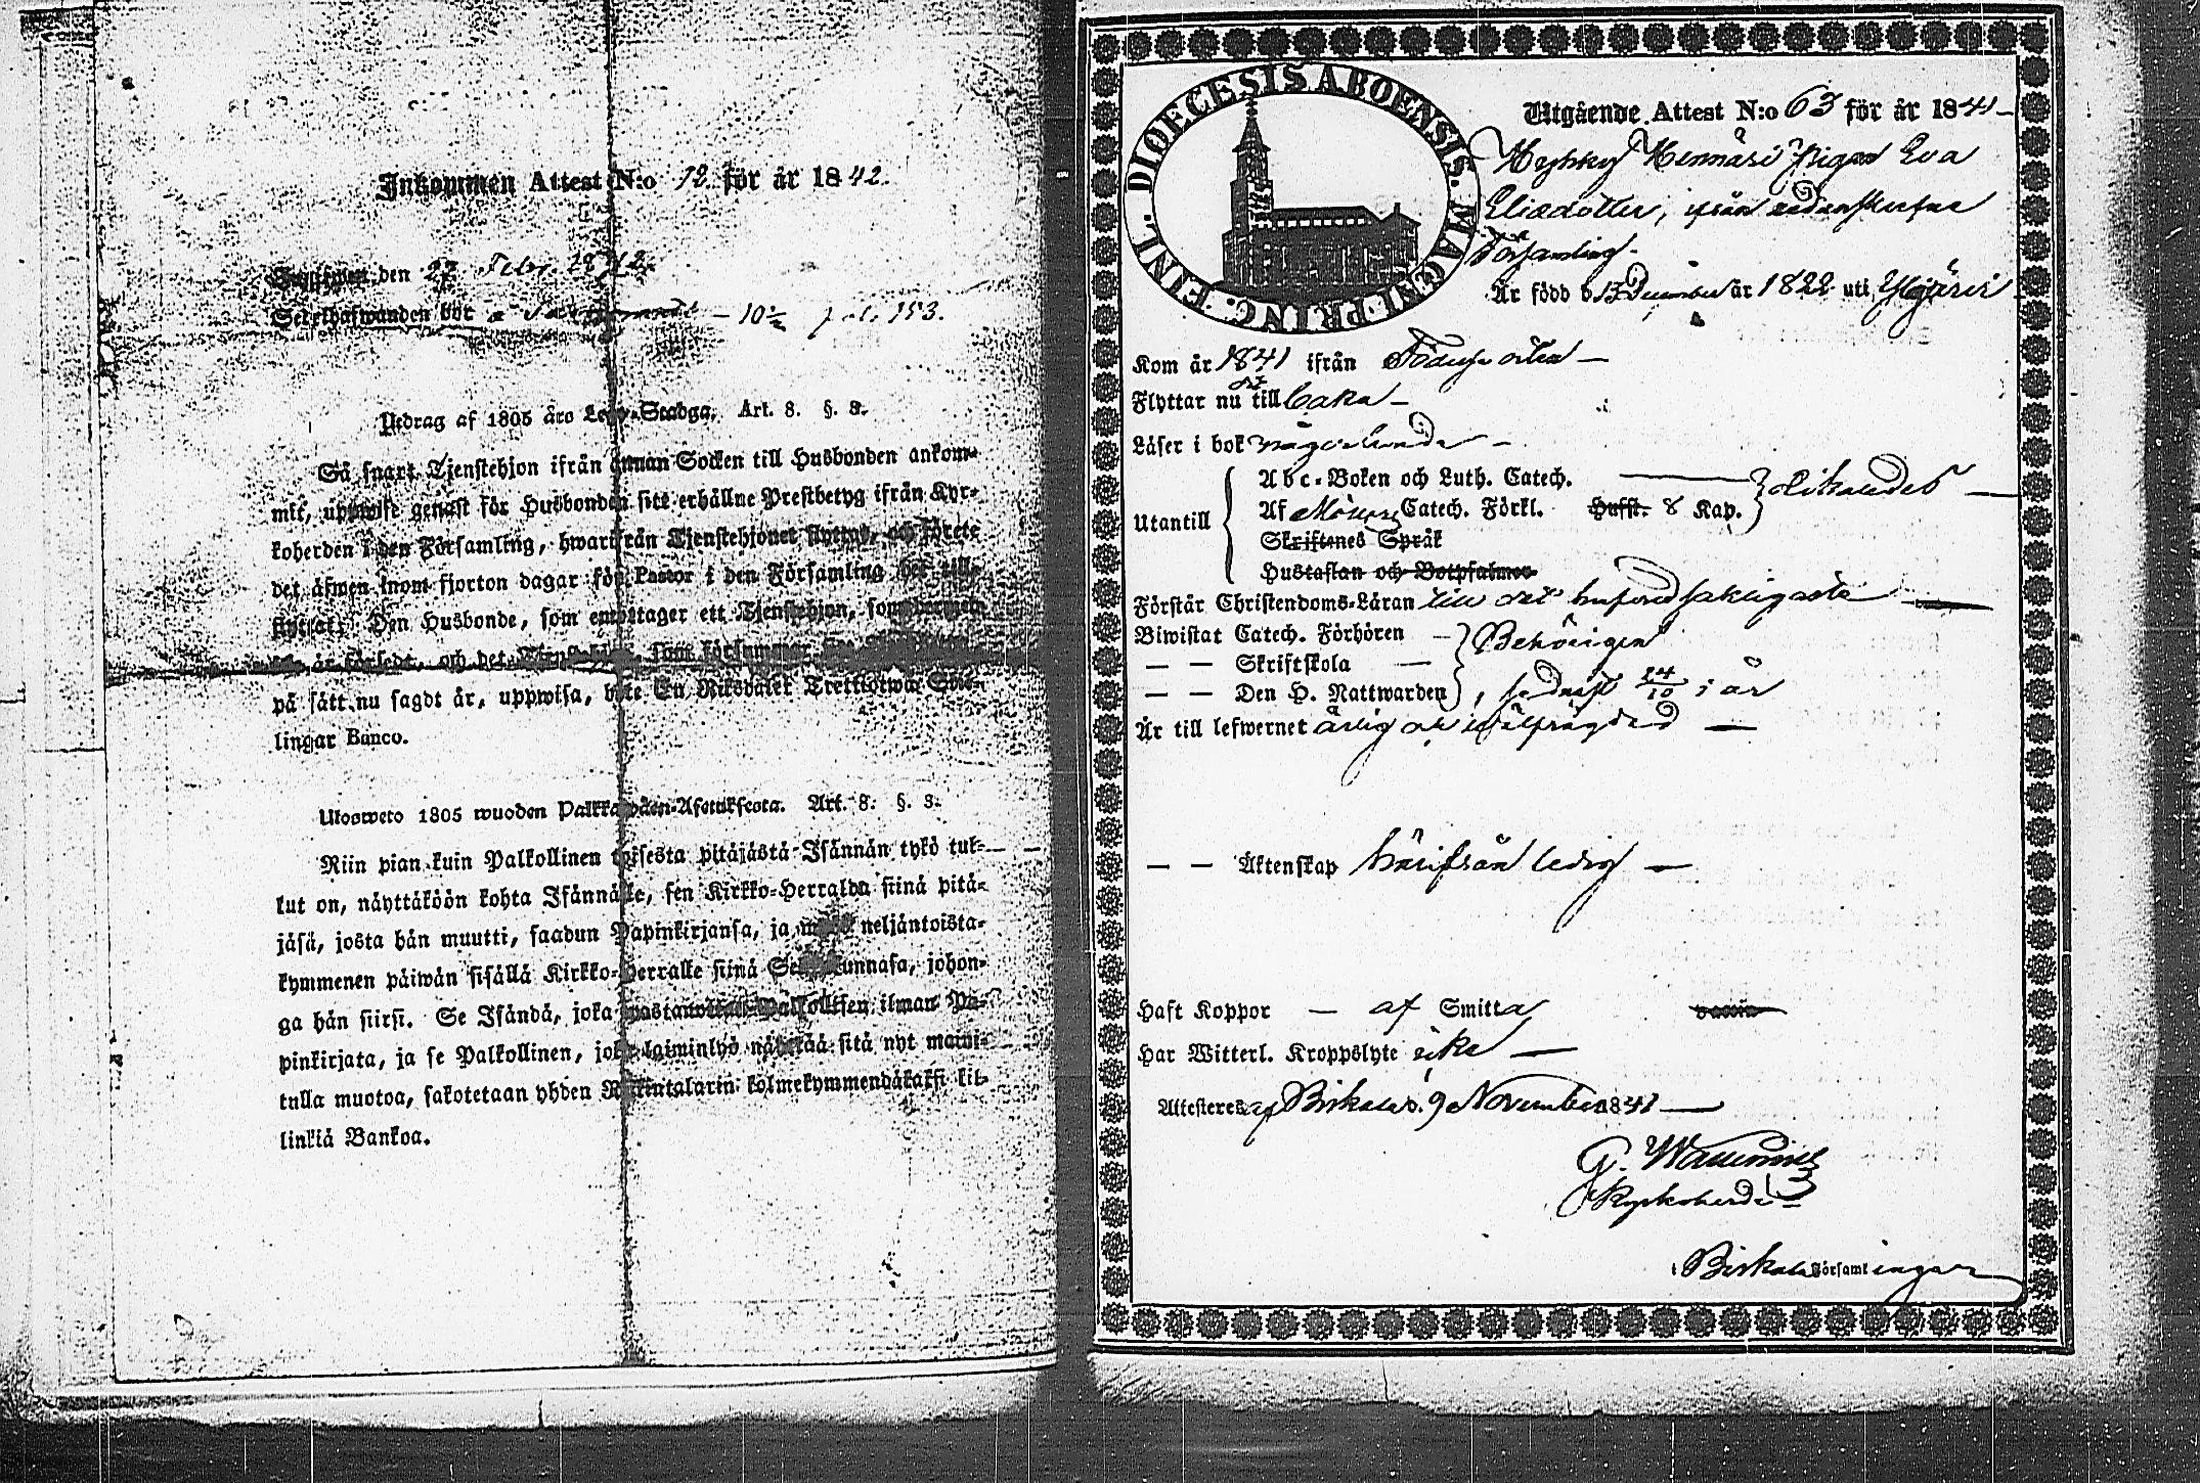 Inkommen Attest N:o 12 för år 1842.
den 27 Febr. 1842.
Sedelhafwanden bor å — 10½ pol. 153.
Utdrag af 1805 åro Lego-Stadga, Art. 8. §. 8.
Så snart Tjenstehjon ifrån annan Socken till Husbonden ankom-
mit, uppwise genast för Husbonden sitt erhållne Prestbetyg ifrån Kyr-
koherden i den Församling, hwarifrån Tjenstehjonet flyttat, och förete
det äfwen inom fjorton dagar för Pastor i den Församling det till-
flyttat. Den Husbonde, som emottager ett Tjenstehjon, som
är försedt, och det Tjenstehjon, som försummar
på sätt nu sagdt är, uppwisa, böte En Riksdaler Trettiotwå Skil-
lingar Banco.
Uloosweto 1805 wuoden Palkkawäen-Asetuksesta. Art. 8. §. 8.
Niin pian kuin Palkollinen toisesta pitäjästä Isännän tykö tul-
lut on, näyttäköön kohta Isännälle, sen Kirkko-Herralda siinä pitä-
jäsä, josta hän muutti, saadun Papinkirjansa, ja neljäntoista-
kymmenen päiwän sisällä Kirkko-Herralle siinä Seurakunnasa, johon-
ga hän siirsi. Se Isändä, joka wastanottaa Palkollisen ilman Pa-
pinkirjata, ja se Palkollinen, joka laiminlyö näyttää sitä nyt maini-
tulla muotoa, sakotetaan yhden Riikintalarin kolmekymmendäkaksi kil-
linkiä Bankoa.
FINL. DIOECESIS ABOENSIS. MAGNI PRINC.
Utgående Attest N:o 63 för år 1841
Heyhky Hennäri Pigan Eva
Eliædotter, ifrån nedanskrefne
Församling.
Är född d 13 December år 1822 uti Ylöjärvi
Kom år 1841 ifrån Födelse orten
Flyttar nu åt till baka
Läser i bok någorlunda
Abc-Boken och Luth. Catech.
Utantill Af Möllers Catech. Förkl. Husst. 8 Kap. Likaledes
Skriftenes Språk
Hustaflan och Botpsalmer
Förstår Christendoms-Läran till det hufvudsakligaste
Biwistat Catech. Förhören Behörigen
— — Skriftskola
— — Den H. Nattwarden, sednast 24/10 i år
Är till lefwernet ärlig och välfrägdad
— — Äktenskap härifrån ledig
Haft Koppor — af Smitta vaccin
Har Witterl. Kroppslyte icke
Attesteres af Birkala d. 9 November 1841
G. Wallenius
Kyrkoherde
i Birkala Församlingar